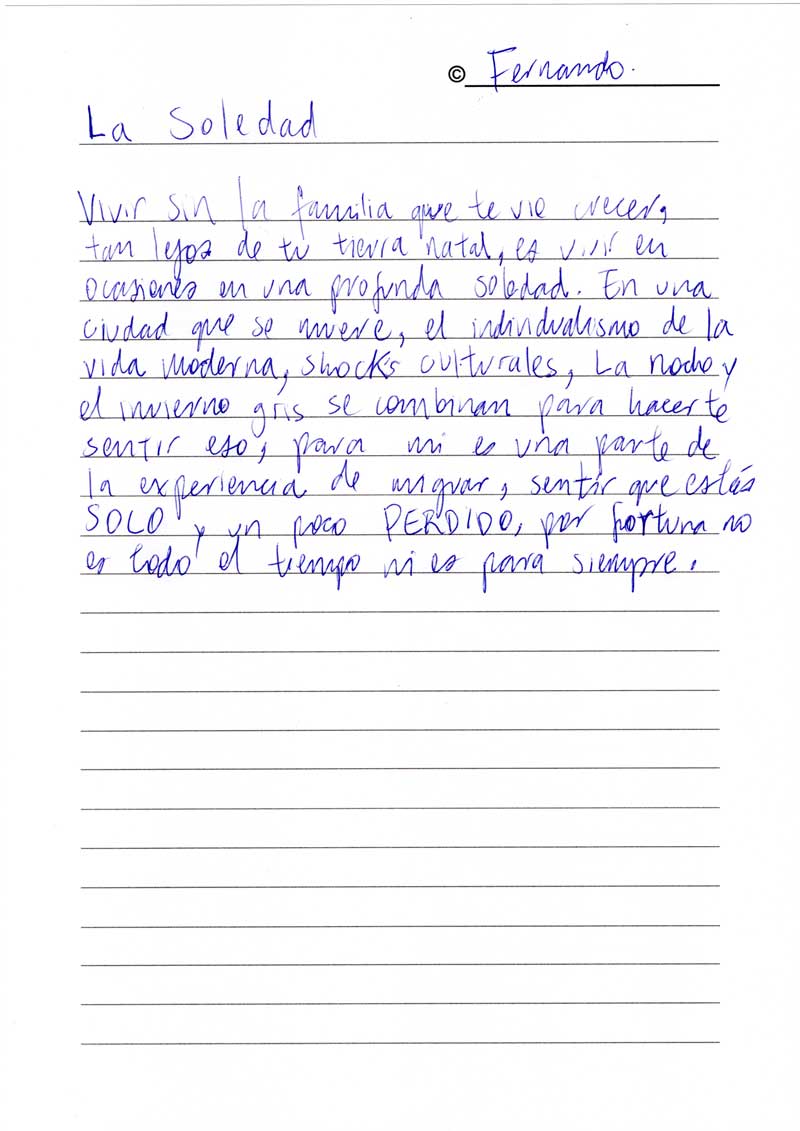 © Fernando.
La Soledad
Vivir sin la familia que te vio crecer,
tan lejos de tu tierra natal, es vivir en
ocasiones en una profunda soledad. En una
ciudad que se mueve, el individualismo de la
vida moderna, shocks culturales, La noche y
el invierno gris se combinan para hacerte
sentir eso, para mi es una parte de
la experiencia de migrar, sentir que estás
SOLO y un poco PERDIDO, por fortuna no
es todo el tiempo ni es para siempre.